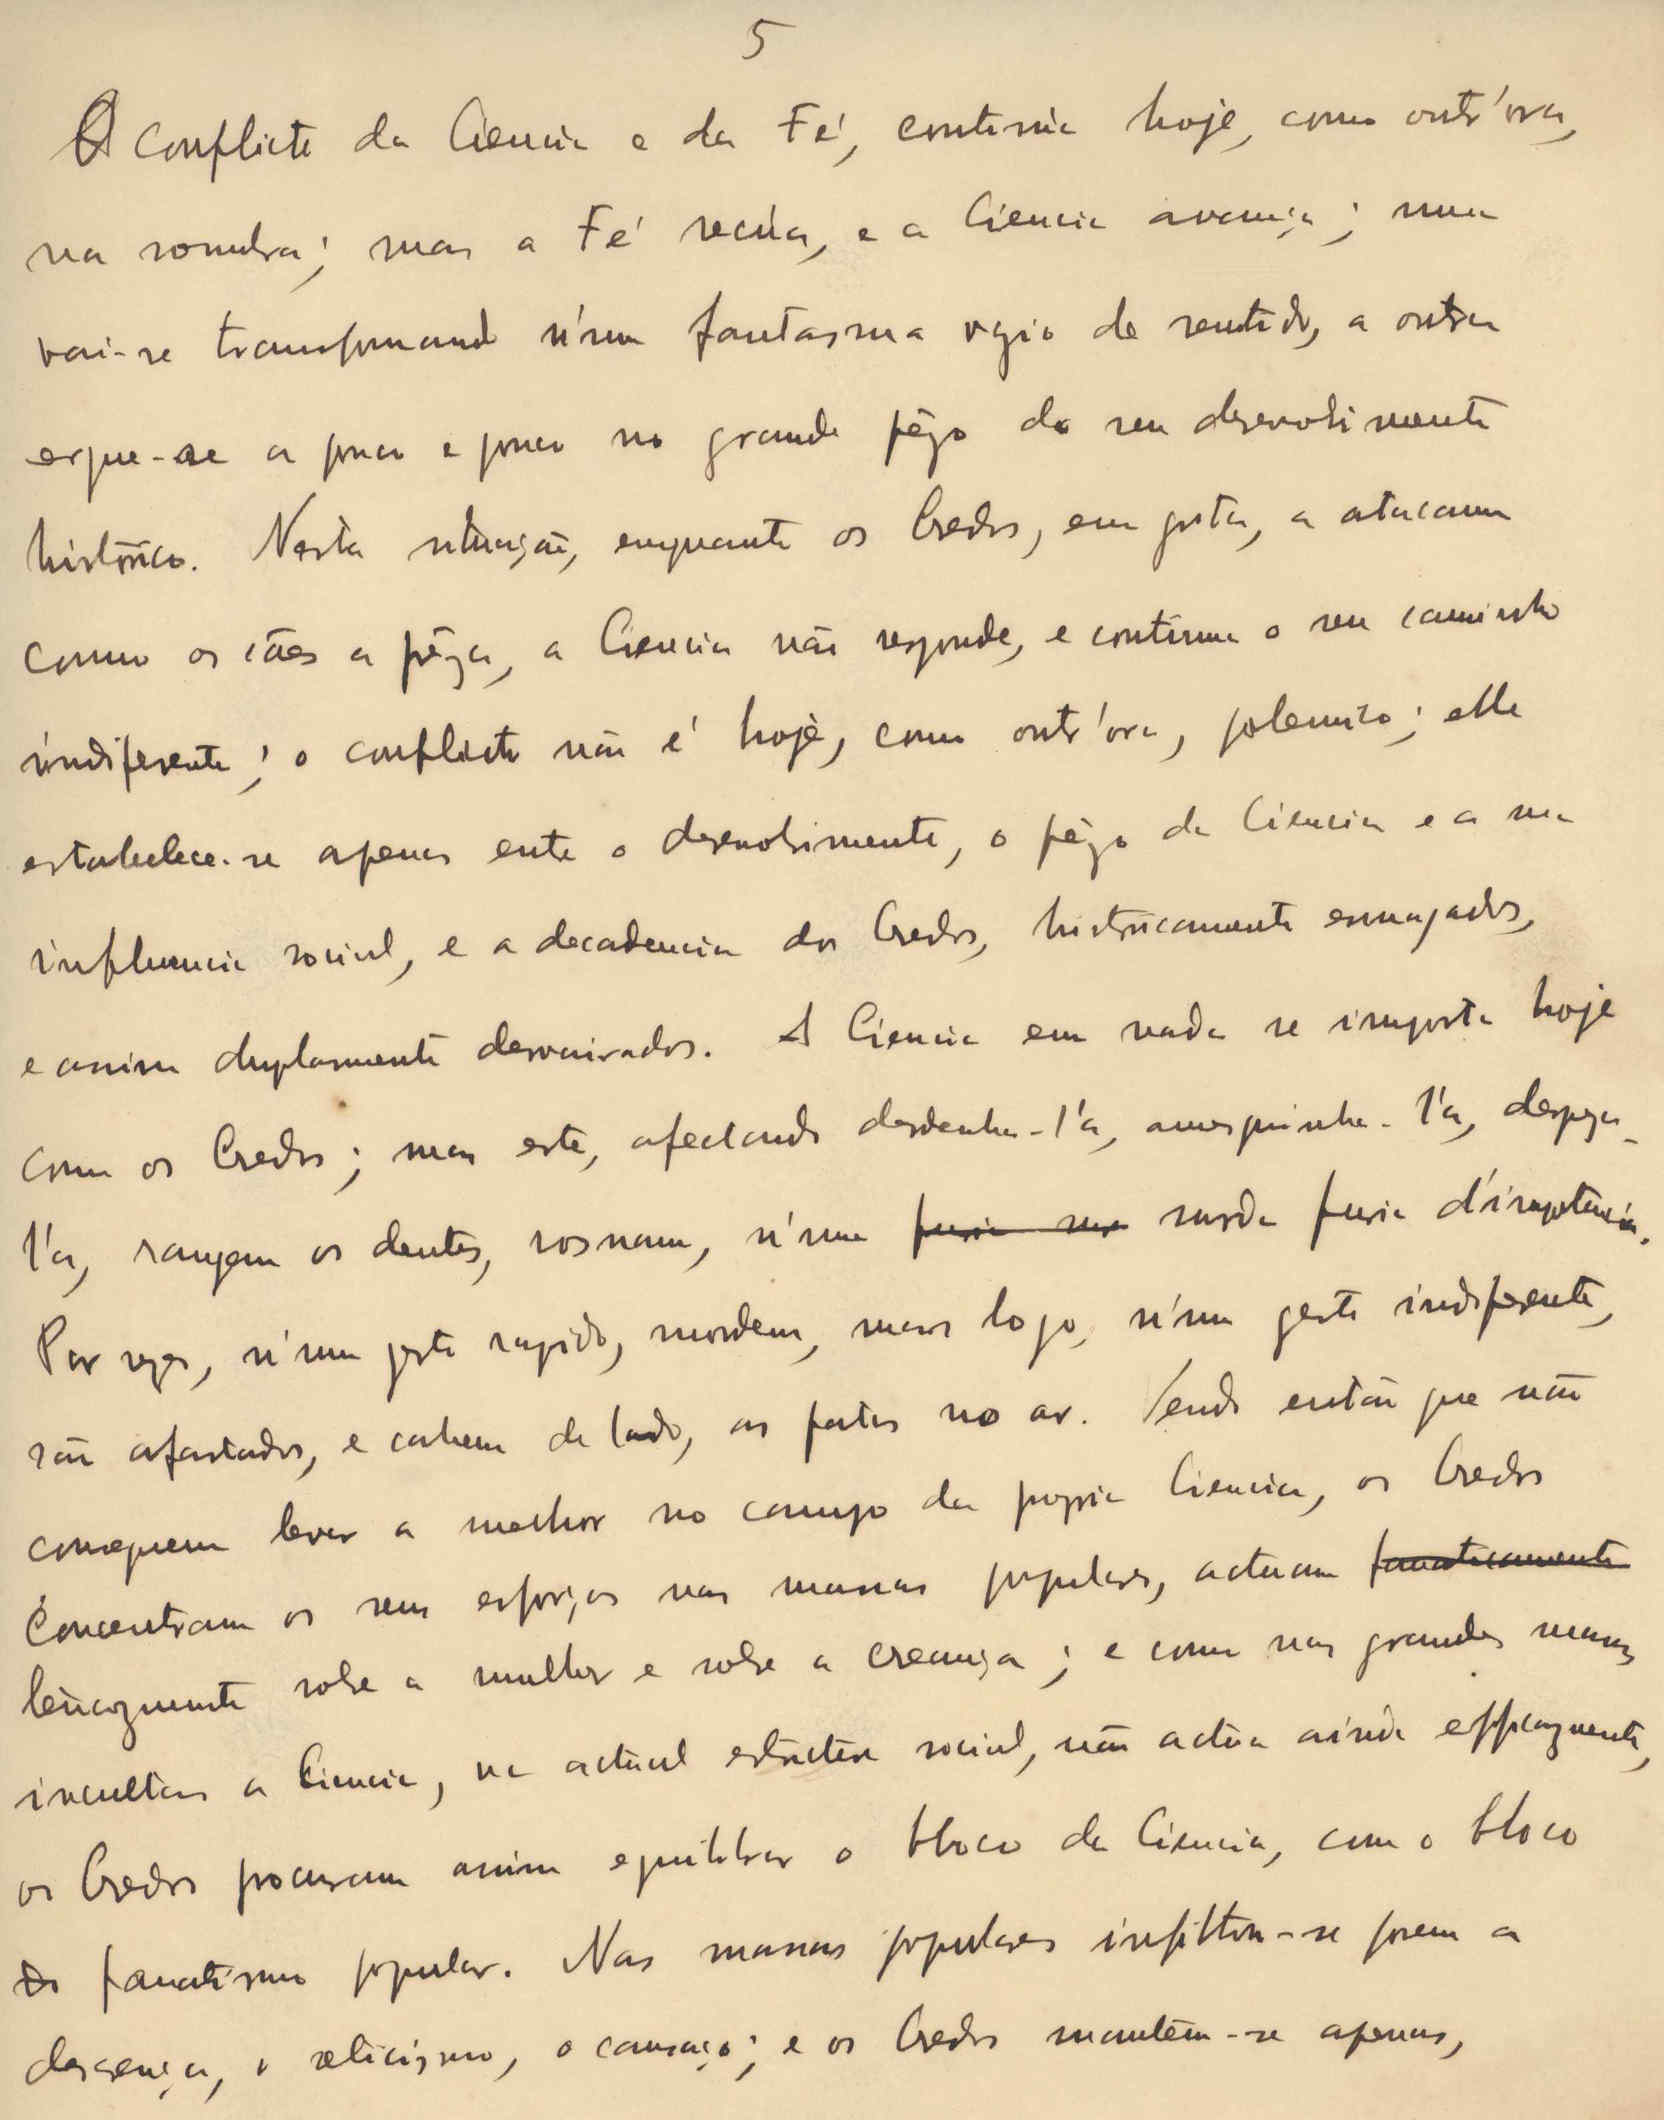 5
O Conflicto da Ciencia e da Fé, continúa hoje, como outr'ora,
na sombra; mas a Fé recúa, e a Ciencia avança; uma
vai-se transformando n'um fantasma vazio de sentido, a outra
ergue-se a pouco e pouco no grande pêzo do seu desenvolvimento
histórico. Nesta situação, emquanto os Credos, em grita, a atacam
como os cães a prêza, a Ciencia não responde, e continua o seu caminho
indiferente; o conflicto não é hoje, como outr'ora, polemico; elle
estabelece-se apenas entre o desenvolvimento, o pêzo da Ciencia e a sua
influencia social, e a decadencia dos Credos, históricamente esmagados,
e assim duplamente desvairados. A Ciencia em nada se importa hoje
com os Credos; mas estes, afectando desdenha-l'a, amesquinha-l'a, despreza-
l'a, rangem os dentes, rosnam, n'uma furia sur surda furia d'impotencia.
Por vezes, n'um gesto rapido, mordem, mas logo, n'um gesto indiferente,
são afastados, e cahem de lado, as patas no ar. Vendo então que não
conseguem levar a melhor no campo da propria Ciencia, os Credos
concentram os seus esforços nas massas populares, actuam fanaticamente
tenazmente sobre a mulher e sobre a creança; e como nas grandes massas
incultas a Ciencia, na actual estructura social, não actúa ainda efficazmente,
os Credos procuram assim equilibrar o bloco da Ciencia, com o bloco
do fanatismo popular. Nas massas populares infiltra-se porem a
descrença, o scéticismo, o cansaço; e os Credos mantêm-se apenas,